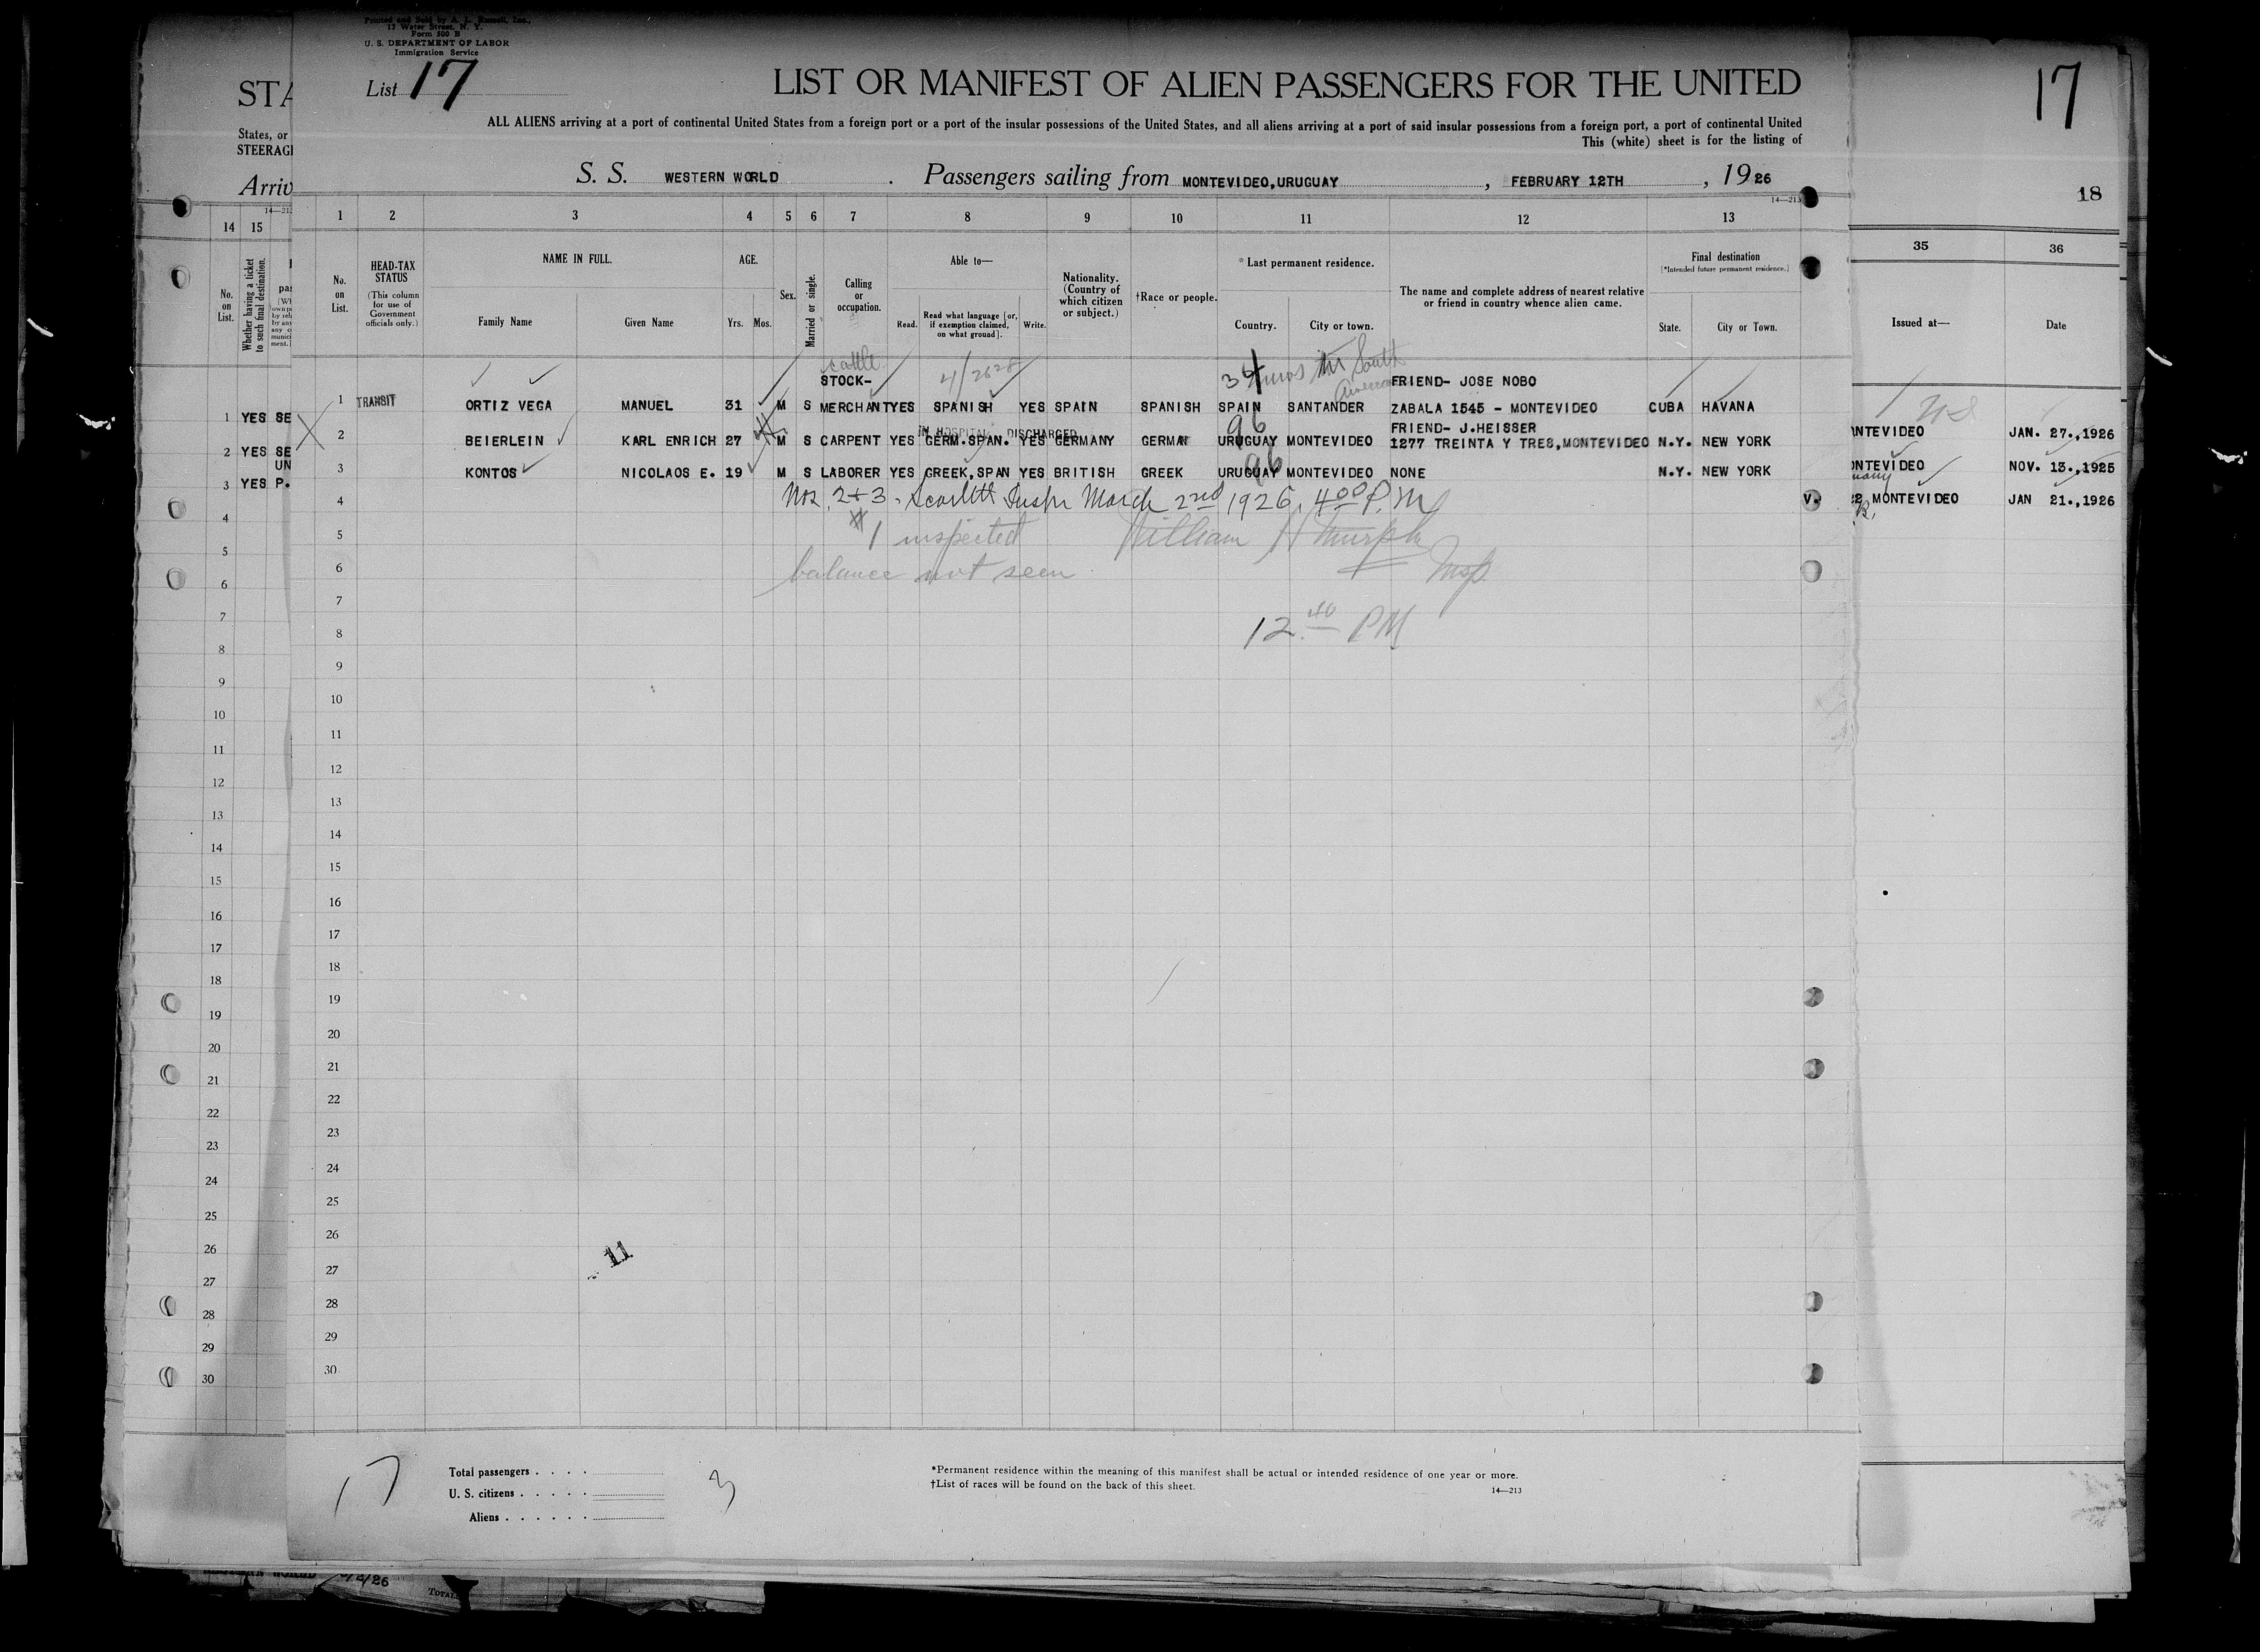 Printed and Sold by A. L. Russell, Inc.,
17 Water Street, N. Y.
Form 500 B
U. S. DEPARTMENT OF LABOR
Immigration Service
List 17
LIST OR MANIFEST OF ALIEN PASSENGERS FOR THE UNITED
ALL ALIENS arriving at a port of continental United States from a foreign port or a port of the insular possessions of the United States, and all aliens arriving at a port of said insular possessions from a foreign port, a port of continental United
This (white) sheet is for the listing of
S. S. WESTERN WORLD . Passengers sailing from MONTEVIDEO,URUGUAY , FEBRUARY 12TH , 1926
14—213
1 2 3 4 5 6 7 8 9 10 11 12 13
No. on List.
HEAD-TAX STATUS
(This column for use of Government officials only.)
NAME IN FULL.
Family Name
Given Name
AGE.
Yrs. Mos.
Sex.
Married or single.
Calling or occupation.
Able to—
Read.
Read what language [or, if exemption claimed, on what ground].
Write.
Nationality. (Country of which citizen or subject.)
†Race or people.
*Last permanent residence.
Country. City or town.
The name and complete address of nearest relative or friend in country whence alien came.
Final destination
[*Intended future permanent residence.]
State. City or Town.
cattle 4/2628 34 mos in South America
STOCK- FRIEND- JOSE NOBO
1 TRANSIT ORTIZ VEGA MANUEL 31 M S MERCHANT YES SPANISH YES SPAIN SPANISH SPAIN SANTANDER ZABALA 1545 - MONTEVIDEO CUBA HAVANA
IN HOSPITAL DISCHARGED 96 FRIEND- J.HEISSER
2 BEIERLEIN KARL ENRICH 27 M S CARPENT YES GERM.SPAN. YES GERMANY GERMAN URUGUAY MONTEVIDEO 1277 TREINTA Y TRES,MONTEVIDEO N.Y. NEW YORK
96
3 KONTOS NICOLAOS E. 19 M S LABORER YES GREEK,SPAN YES BRITISH GREEK URUGUAY MONTEVIDEO NONE N.Y. NEW YORK
4 Nos. 2+3. Scarlett Inspr March 2nd 1926, 4 00 P.M
5 #1 inspected William H Murphy
6 balance not seen Insp.
7
8 12 40 PM
9
10
11
12
13
14
15
16
17
18
19
20
21
22
23
24
25
26
11
27
28
29
30
17
Total passengers . . . .
U. S. citizens . . . . .
Aliens . . . . . .
3
*Permanent residence within the meaning of this manifest shall be actual or intended residence of one year or more.
†List of races will be found on the back of this sheet.
14—213
STA
States, or
STEERAG
Arriv
14—213
14 15
No. on List.
Whether having a ticket to such final destination.
1 YES SE
2 YES SE
UN
3 YES P.
4
5
6
7
8
9
10
11
12
13
14
15
16
17
18
19
20
21
22
23
24
25
26
27
28
29
30
17
18
35 36
Issued at— Date
NTEVIDEO JAN. 27.,1926
ONTEVIDEO NOV. 13.,1925
V. 22, MONTEVIDEO JAN 21.,1926